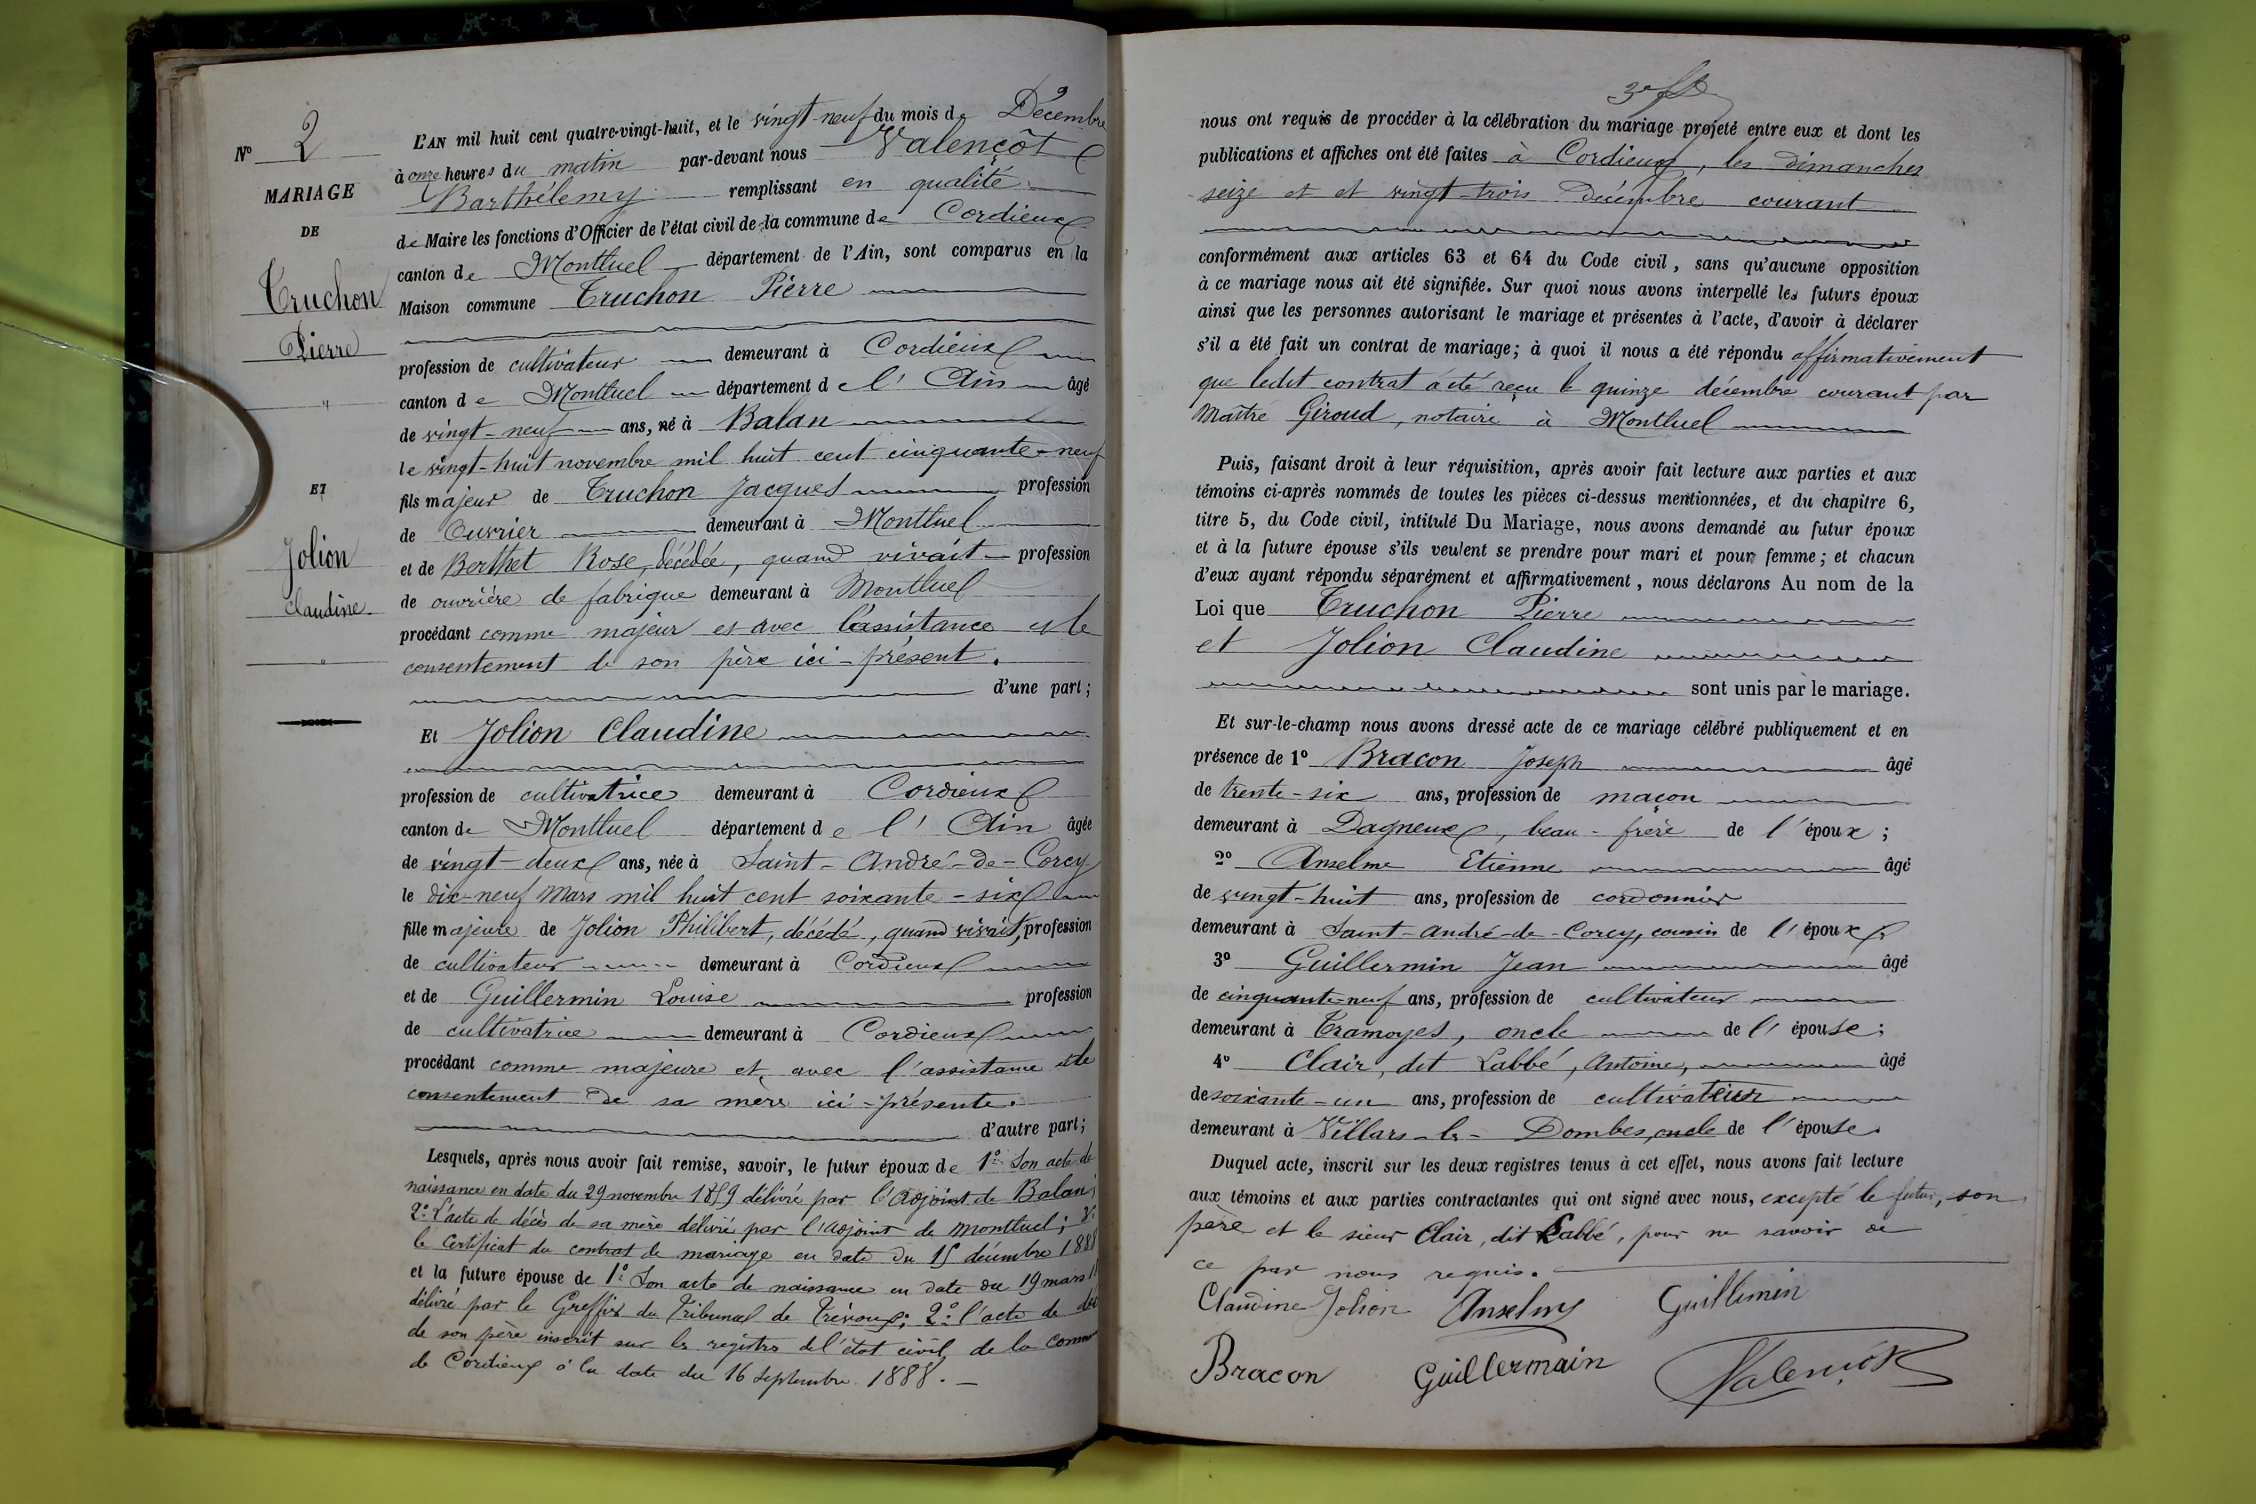 Nº 2
MARIAGE
DE
Truchon
Pierre
"
ET
Jolion
Claudine.
"
L'AN mil huit cent quatre-vingt-huit, et le vingt-neuf du mois de Décembre
à onze heures du matin par-devant nous Valençot
Barthélemy remplissant en qualité
de Maire les fonctions d'Officier de l'état civil de la commune de Cordieux
canton de Montluel département de l'Ain, sont comparus en la
Maison commune Truchon Pierre
profession de cultivateur demeurant à Cordieux
canton de Montluel département de l'Ain âgé
de vingt-neuf ans, né à Balan
le vingt-huit novembre mil huit cent cinquante-neuf
fils majeur de Truchon Jacques profession
de Ouvrier demeurant à Montluel
et de Berthet Rose, décédée, quand vivait profession
de ouvrière de fabrique demeurant à Montluel
procédant comme majeur et avec l'assistance et le
consentement de son père ici-présent.
d'une part;
Et Jolion Claudine
profession de cultivatrice demeurant à Cordieux
canton de Montluel département de l'Ain âgée
de vingt-deux ans, née à Saint-André-de-Corcy
le dix-neuf Mars mil huit cent soixante-six
fille majeure de Jolion Philibert, décédé, quand vivait, profession
de cultivateur demeurant à Cordieux
et de Guillermin Louise profession
de cultivatrice demeurant à Cordieux
procédant comme majeure et, avec l'assistance et le
consentement de sa mère ici-présente.
d'autre part;
Lesquels, après nous avoir fait remise, savoir, le futur époux de 1º Son acte de
naissance en date du 29 novembre 1859 délivré par l'Adjoint de Balan;
2º L'acte de décès de sa mère délivré par l'adjoint de Montluel; 3º
le Certificat du contrat de mariage en date du 15 décembre 1888
et la future épouse de 1º Son acte de naissance en date du 19 mars
délivré par le Greffier du Tribunal de Trévoux; 2º l'acte de
de son père inscrit sur les registres de l'état civil de la
de Cordieux à la date du 16 septembre 1888.
nous ont requis de procéder à la célébration du mariage projeté entre eux et dont les
publications et affiches ont été faites à Cordieux, les dimanches
seize et et vingt-trois Décembre courant
conformément aux articles 63 et 64 du Code civil, sans qu'aucune opposition
à ce mariage nous ait été signifiée. Sur quoi nous avons interpellé les futurs époux
ainsi que les personnes autorisant le mariage et présentes à l'acte, d'avoir à déclarer
s'il a été fait un contrat de mariage; à quoi il nous a été répondu affirmativement
que ledit contrat a été reçu le quinze décembre courant par
Maître Giroud, notaire à Montluel
Puis, faisant droit à leur réquisition, après avoir fait lecture aux parties et aux
témoins ci-après nommés de toutes les pièces ci-dessus mentionnées, et du chapitre 6,
titre 5, du Code civil, intitulé Du Mariage, nous avons demandé au futur époux
et à la future épouse s'ils veulent se prendre pour mari et pour femme; et chacun
d'eux ayant répondu séparément et affirmativement, nous déclarons Au nom de la
Loi que Truchon Pierre
et Jolion Claudine
sont unis par le mariage.
Et sur-le-champ nous avons dressé acte de ce mariage célébré publiquement et en
présence de 1º Bracon Joseph âgé
de trente-six ans, profession de maçon
demeurant à Dagneux, beau-frère de l'époux;
2º Anselme Etienne âgé
de vingt-huit ans, profession de cordonnier
demeurant à Saint-André-de-Corcy, cousin de l'époux
3º Guillermin Jean âgé
de cinquante-neuf ans, profession de cultivateur
demeurant à Tramoyes, oncle de l'épouse;
4º Clair, dit Labbé, Antoine, âgé
de soixante-un ans, profession de cultivateur
demeurant à Villars-les-Dombes, oncle de l'épouse.
Duquel acte, inscrit sur les deux registres tenus à cet effet, nous avons fait lecture
aux témoins et aux parties contractantes qui ont signé avec nous, excepté le futur, son
père et le sieur Clair, dit Labbé, pour ne savoir de
ce par nous requis.
Claudine Jolion Anselme Guillemin
Bracon Guillermain Valençot